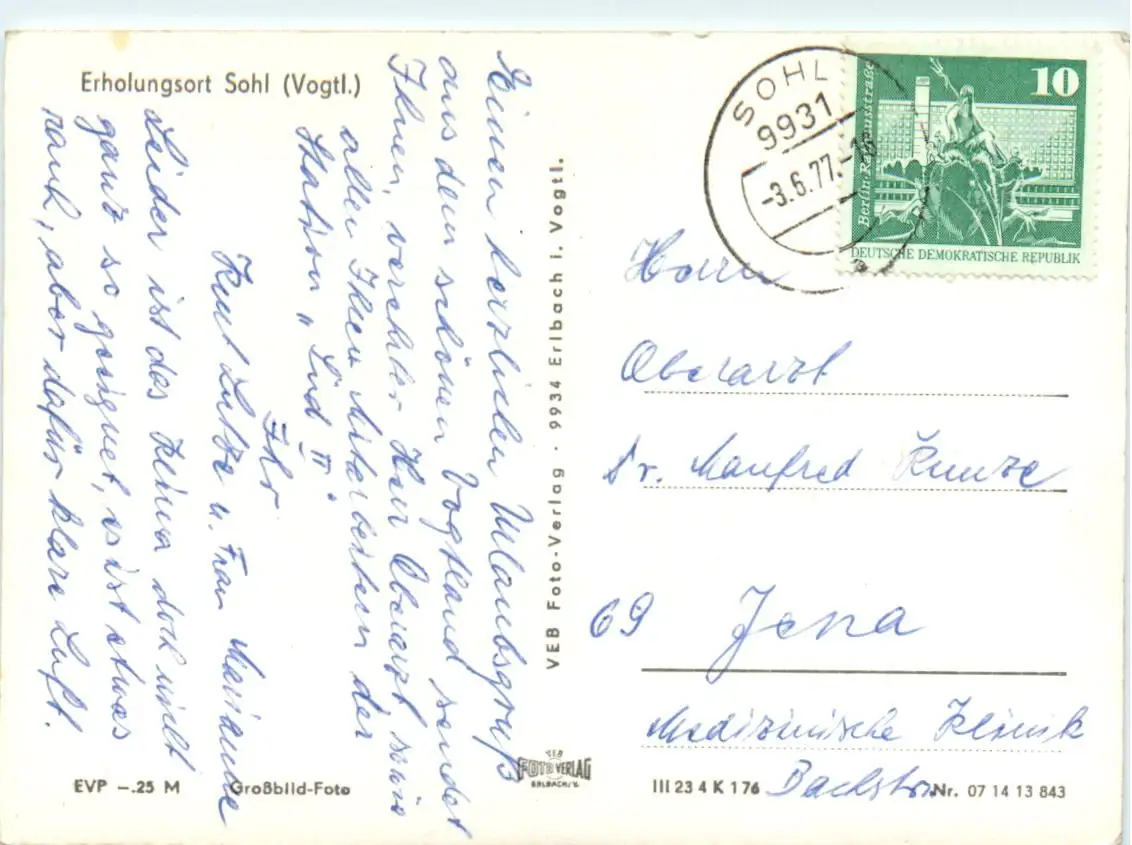 Erholungsort Sohl (Vogtl.)
Einen herzlichen Urlaubsgruß
aus dem schönen Vogtland sendet
Ihnen, verehrter Herr Oberarzt sowie
allen Ihren Mitarbeitern der
Station "Süd II"
Ihr
Kurt Lutze u. Frau Marianne
Leider ist das Klima doch nicht
ganz so geeignet, es ist etwas
rauh, aber dafür klare Luft.
VEB Foto-Verlag · 9934 Erlbach i. Vogtl.
SOHL
9931
-3.6.77.-18
10
Berlin-Rathausstraße
DEUTSCHE DEMOKRATISCHE REPUBLIK
Herrn
Oberarzt
Dr. Manfred Kunze
69 Jena
Medizinische Klinik
Bachstr.
EVP –.25 M
Großbild-Foto
VEB
FOTO VERLAG
ERLBACH/V.
III 23 4 K 1 76
Nr. 07 14 13 843